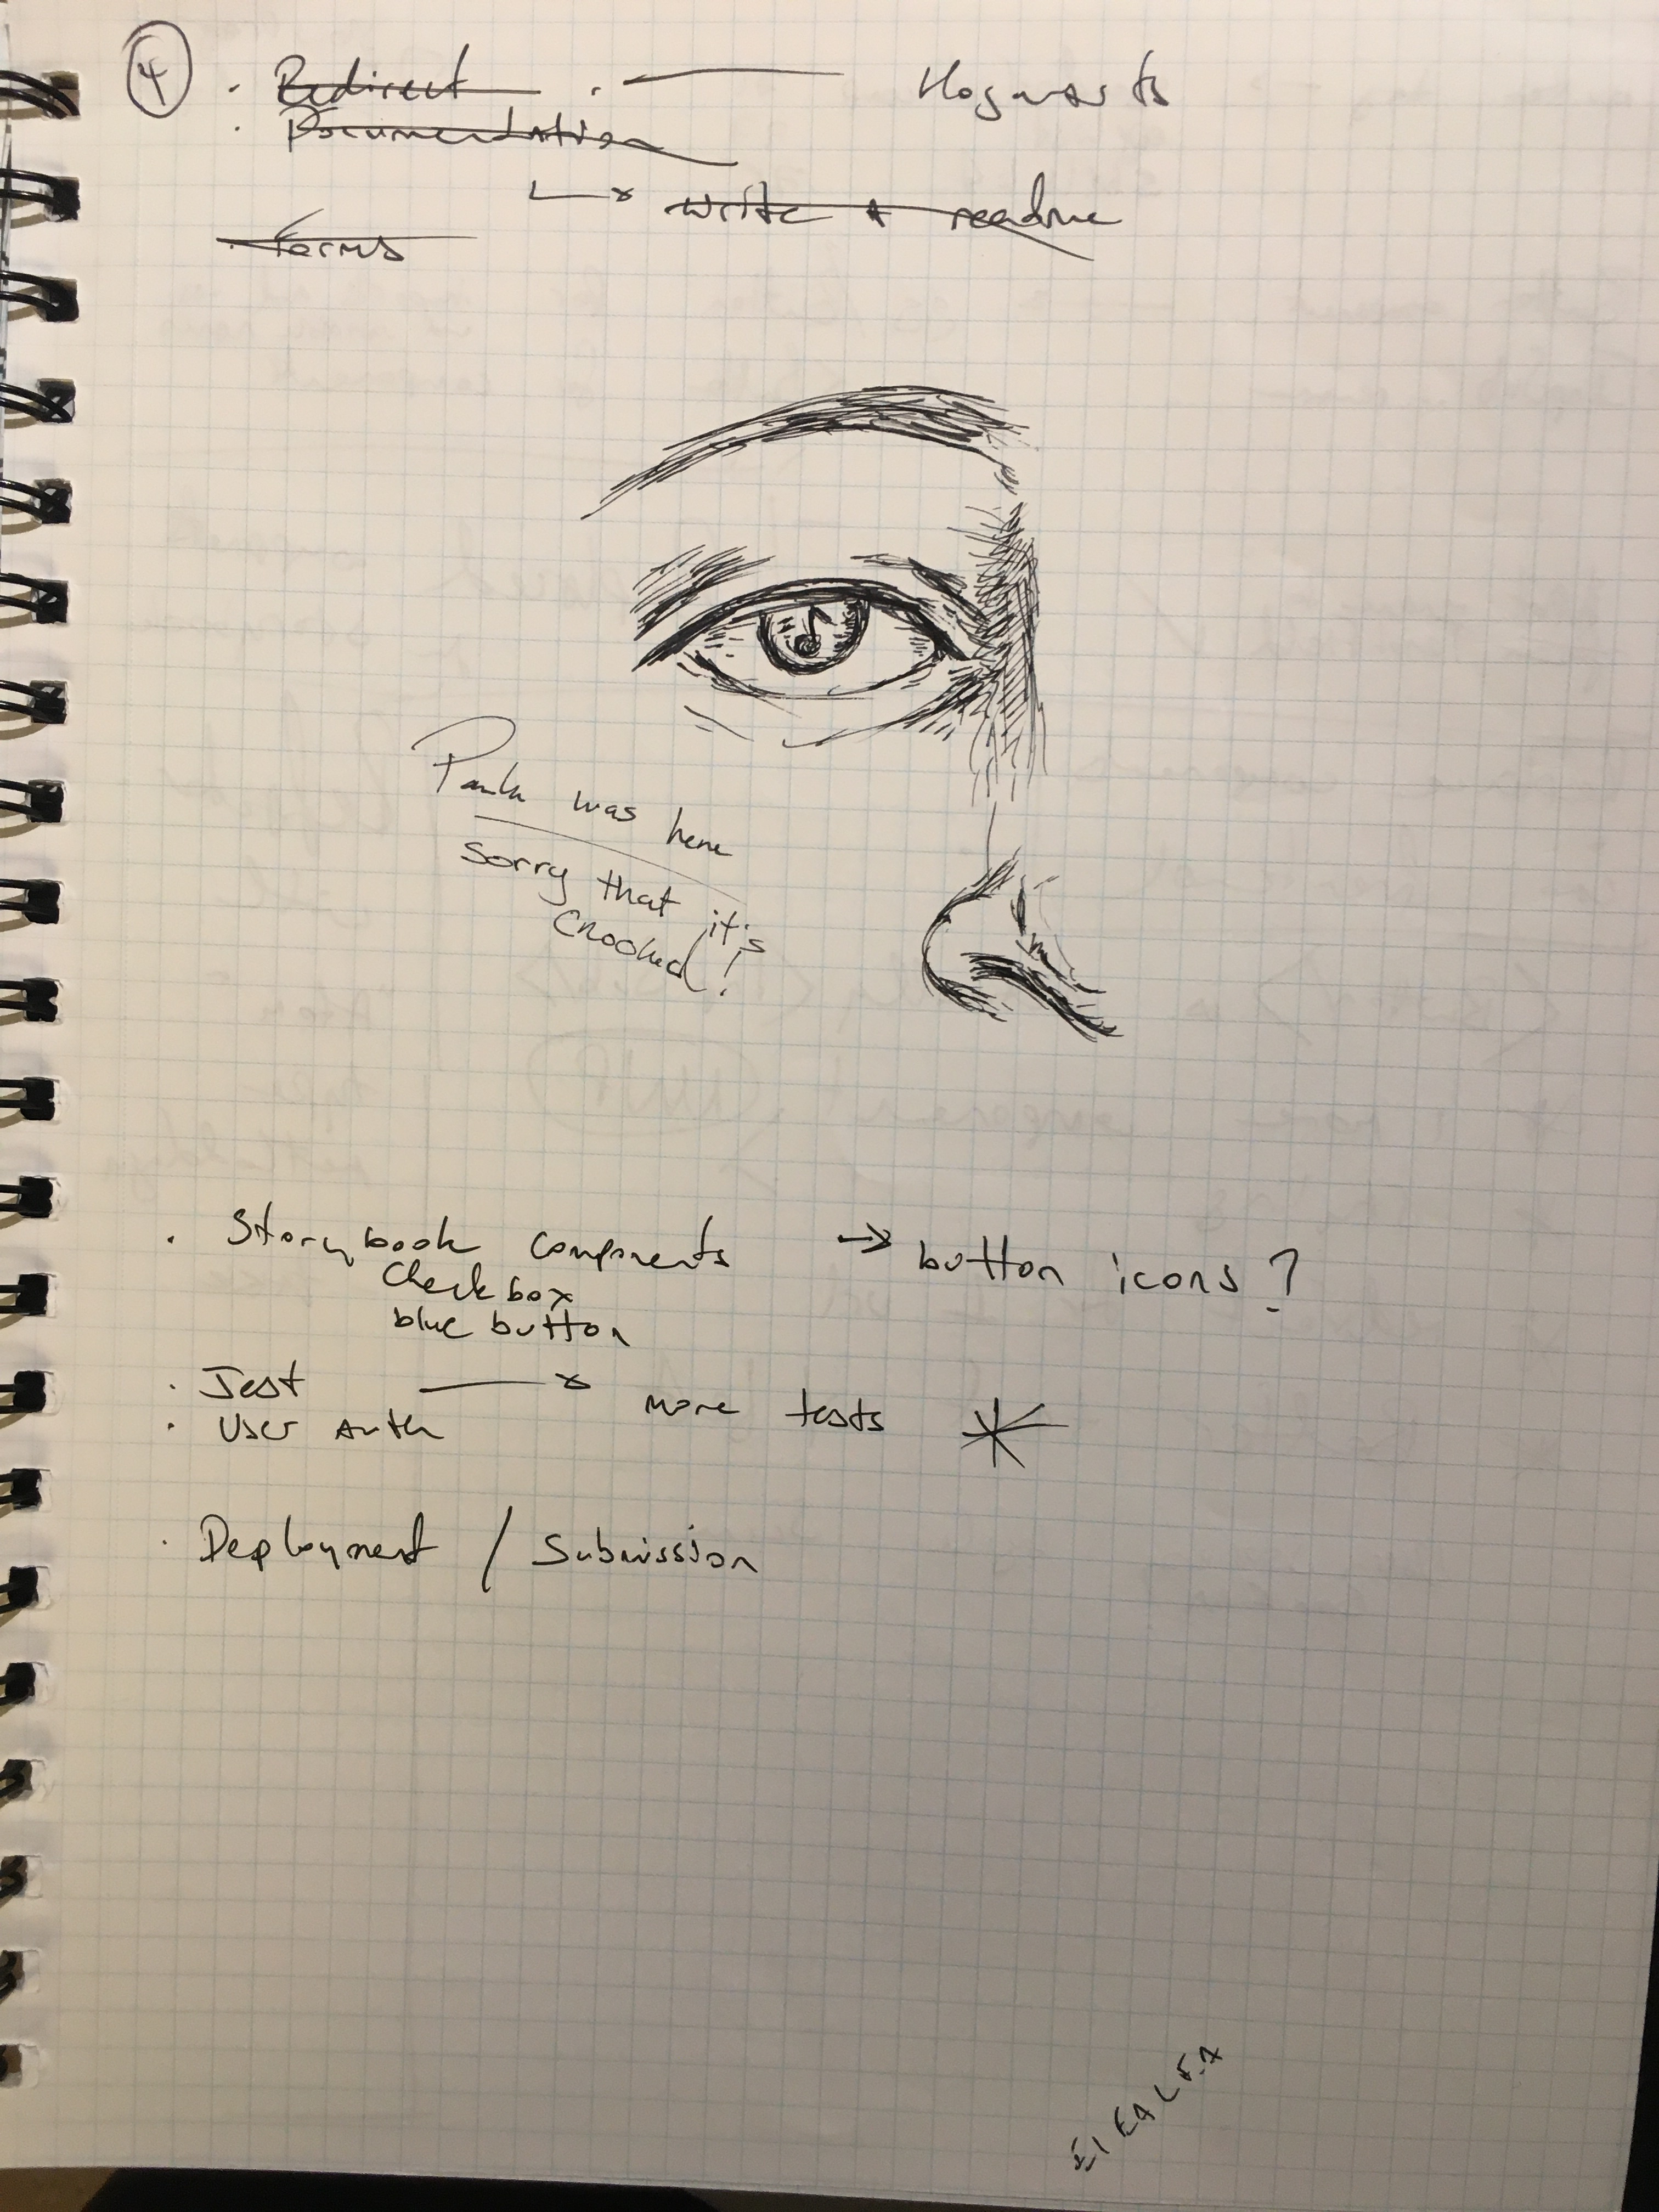 4 · Redirect · Hogwarts
· Documentation
write a readme
· Forms
Paula was here
Sorry that it's
crooked!
· Storybook components → button icons?
checkbox
blue button
· Jest more tests
· User Auth
· Deployment / Submission